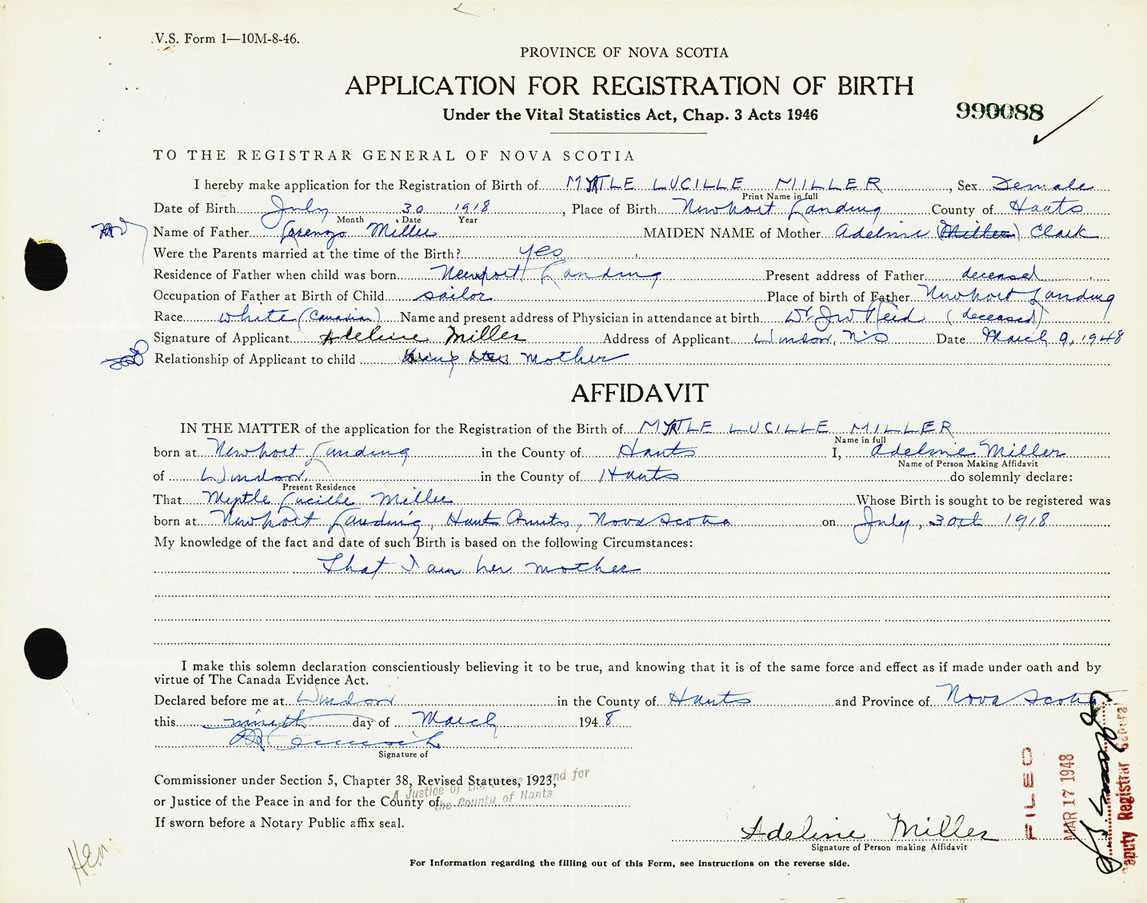 V.S. Form 1—10M-8-46.
PROVINCE OF NOVA SCOTIA
APPLICATION FOR REGISTRATION OF BIRTH
Under the Vital Statistics Act, Chap. 3 Acts 1946
990088
TO THE REGISTRAR GENERAL OF NOVA SCOTIA
I hereby make application for the Registration of Birth of MYRTLE LUCILLE MILLER, Sex Female
Print Name in full
Date of Birth July 30 1918, Place of Birth Newport Landing County of Hants
Month Date Year
Name of Father Lorenzo Miller MAIDEN NAME of Mother Adeline (Miller) Clark
Were the Parents married at the time of the Birth? yes
Residence of Father when child was born Newport Landing Present address of Father deceased
Occupation of Father at Birth of Child sailor Place of birth of Father Newport Landing
Race white (Canadian) Name and present address of Physician in attendance at birth Dr J W Reid (deceased)
Signature of Applicant Adeline Miller Address of Applicant Windsor, N S Date March 9, 1948
Relationship of Applicant to child Mother
AFFIDAVIT
IN THE MATTER of the application for the Registration of the Birth of MYRTLE LUCILLE MILLER
Name in full
born at Newport Landing in the County of Hants I, Adeline Miller
Name of Person Making Affidavit
of Windsor in the County of Hants do solemnly declare:
Present Residence
That Myrtle Lucille Miller Whose Birth is sought to be registered was
born at Newport Landing, Hants County, Nova Scotia on July, 30th 1918
My knowledge of the fact and date of such Birth is based on the following Circumstances:
That I am her mother
I make this solemn declaration conscientiously believing it to be true, and knowing that it is of the same force and effect as if made under oath and by
virtue of The Canada Evidence Act.
Declared before me at Windsor in the County of Hants and Province of Nova Scotia
this ninth day of March 1948
Signature of
Commissioner under Section 5, Chapter 38, Revised Statutes, 1923,
or Justice of the Peace in and for the County of
A Justice of the and for
the County of Hants
If sworn before a Notary Public affix seal.
Adeline Miller
Signature of Person making Affidavit
FILED
MAR 17 1948
Deputy Registrar General
For Information regarding the filling out of this Form, see instructions on the reverse side.